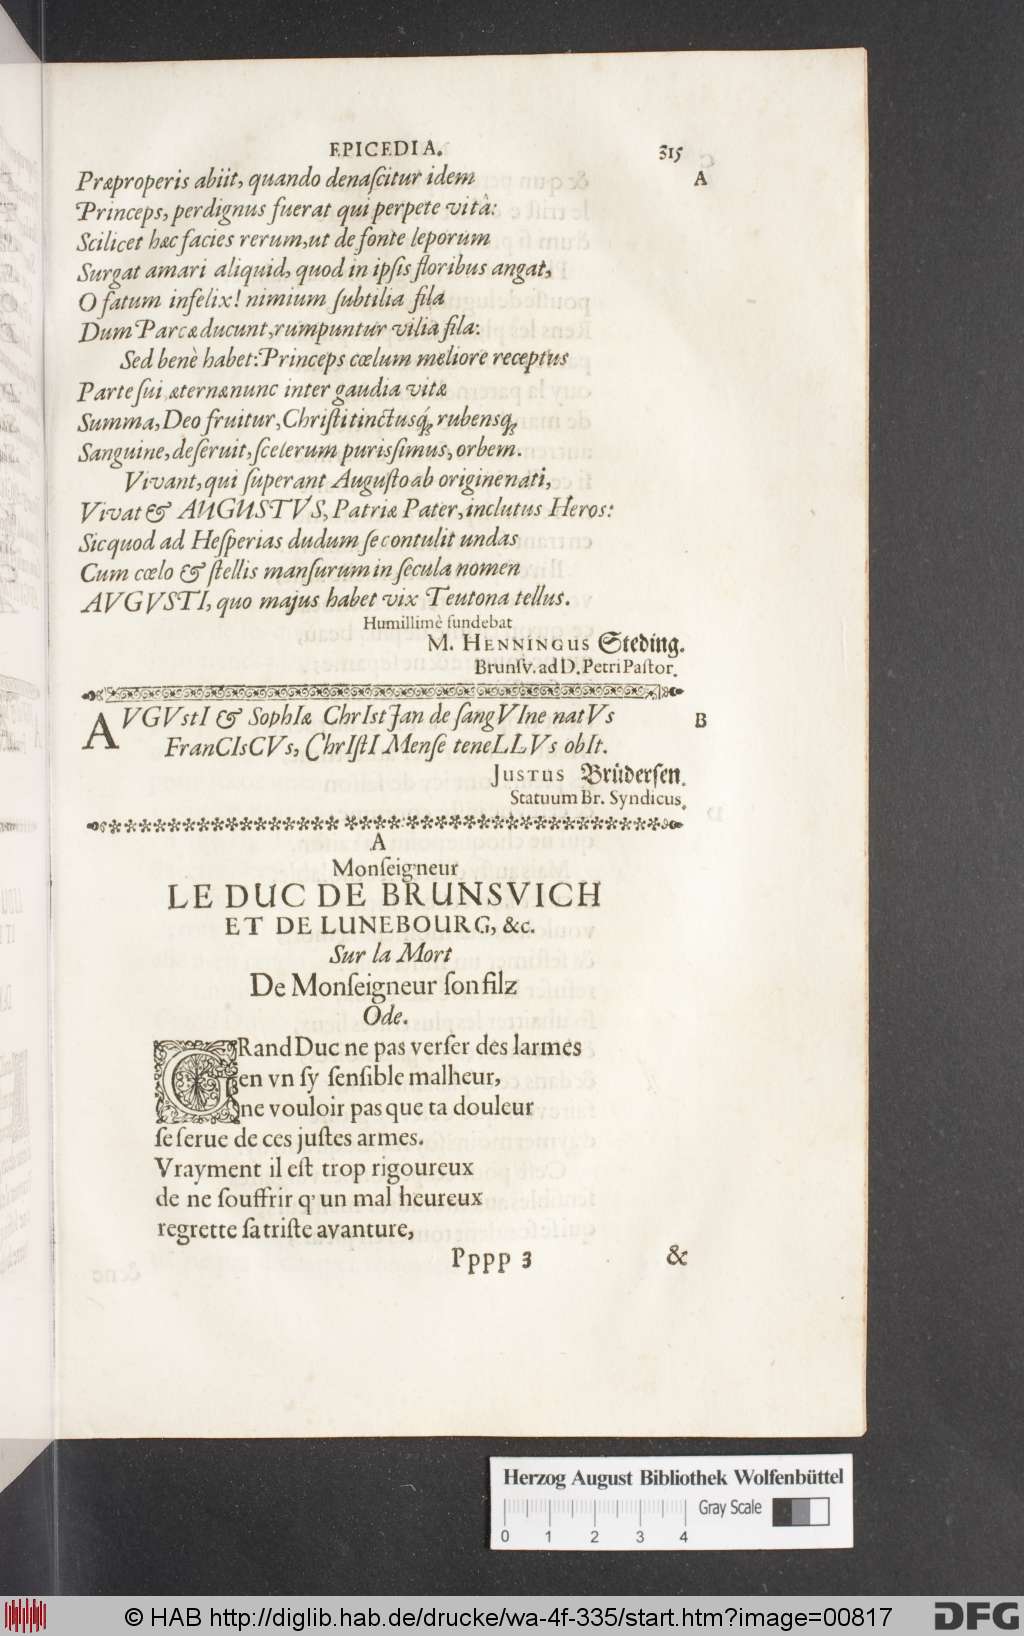 EPICEDIA. 315
Præproperis abiit, quando denaſcitur idem A
Princeps, perdignus fuerat qui perpete vitâ:
Scilicet hæc facies rerum, ut de fonte leporum
Surgat amari aliquid, quod in ipſis floribus angat,
O fatum infelix! nimium ſubtilia fila
Dum Parcæ ducunt, rumpuntur vilia fila:
Sed benè habet: Princeps cœlum meliore receptus
Parte ſui æternæ nunc inter gaudia vitæ
Summa, Deo fruitur, Chriſti tinctusq́; rubensq́;
Sanguine, deſeruit, ſcelerum purisſimus, orbem.
Vivant, qui ſuperant Auguſto ab origine nati,
Vivat & AUGUSTVS, Patriæ Pater, inclutus Heros:
Sic quod ad Heſperias dudum ſe contulit undas
Cum cœlo & ſtellis manſurum in ſecula nomen
AVGVSTI, quo majus habet vix Teutona tellus.
Humillimè fundebat
M. HENNINGUS Steding.
Brunſv. ad D. Petri Paſtor.
AVGVstI & SophIæ ChrIstJan de ſangVIne natVs B
FranCIsCVs, ChrIſtI Menſe teneLLVs obIt.
JUSTUS Brüderſen.
Statuum Br. Syndicus.
A
Monſeigneur
LE DUC DE BRUNSVICH
ET DE LUNEBOURG, &c.
Sur la Mort
De Monſeigneur ſon filz
Ode.
GRand Duc ne pas verſer des larmes
en vn ſy ſenſible malheur,
ne vouloir pas que ta douleur
ſe ſerue de ces juſtes armes.
Vrayment il eſt trop rigoureux
de ne ſouffrir q' un mal heureux
regrette ſa triſte avanture,
Pppp 3 &
Herzog August Bibliothek Wolfenbüttel
Gray Scale
0 1 2 3 4
© HAB http://diglib.hab.de/drucke/wa-4f-335/start.htm?image=00817 DFG